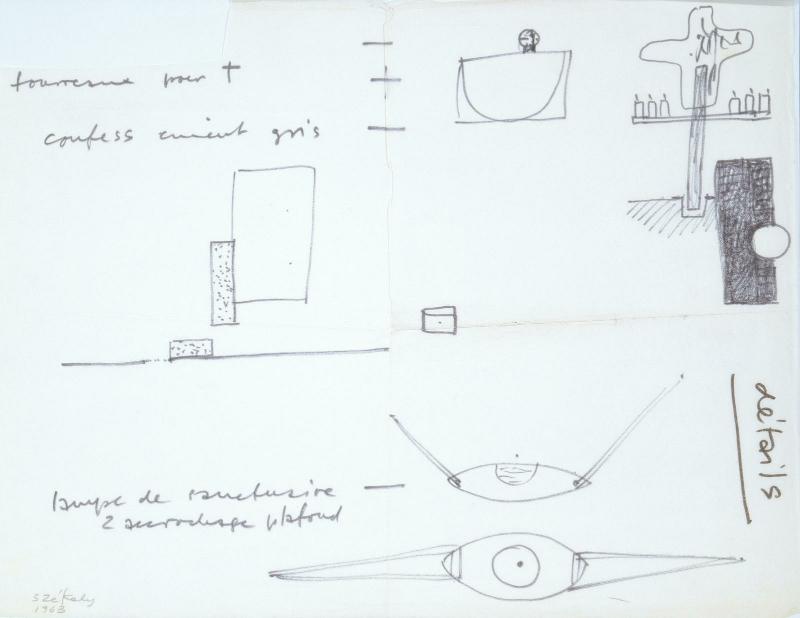 pour †
confess ciment gris
lampe de sanctuaire
2 accrochage plafond
détails
Székely
1963